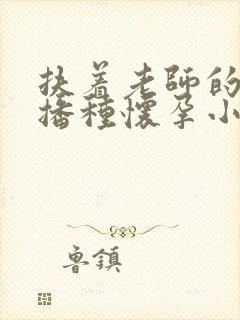 扶着老師的
播種懷孕小
魯鎮